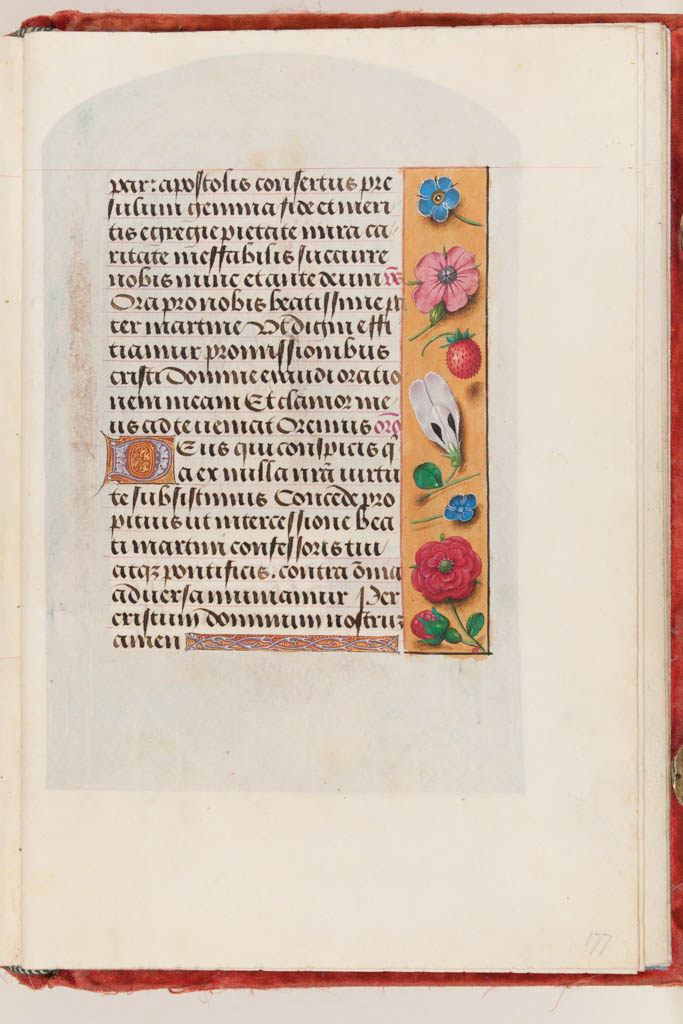 par: apostolis consertus pre
sulum gemma fide et meri
tis egregie pietate mira ca
ritate ineffabilis succurre
nobis nunc et ante deum
Ora pro nobis beatissime pa
ter martine Vt digni effi
tiamur promissionibus
cristi Domine exaudi oratio
nem meam Et clamor me
us ad te veniat Oremus orō
Deus qui conspicis q̄
a ex nulla nr̄a virtu
te subsistimus Concede pro
pitius ut intercessione bea
ti martini confessoris tui
atqꝫ pontificis. contra om̄ia
adversa muniamur Per
cristum dominum nostruꝫ
amen
177